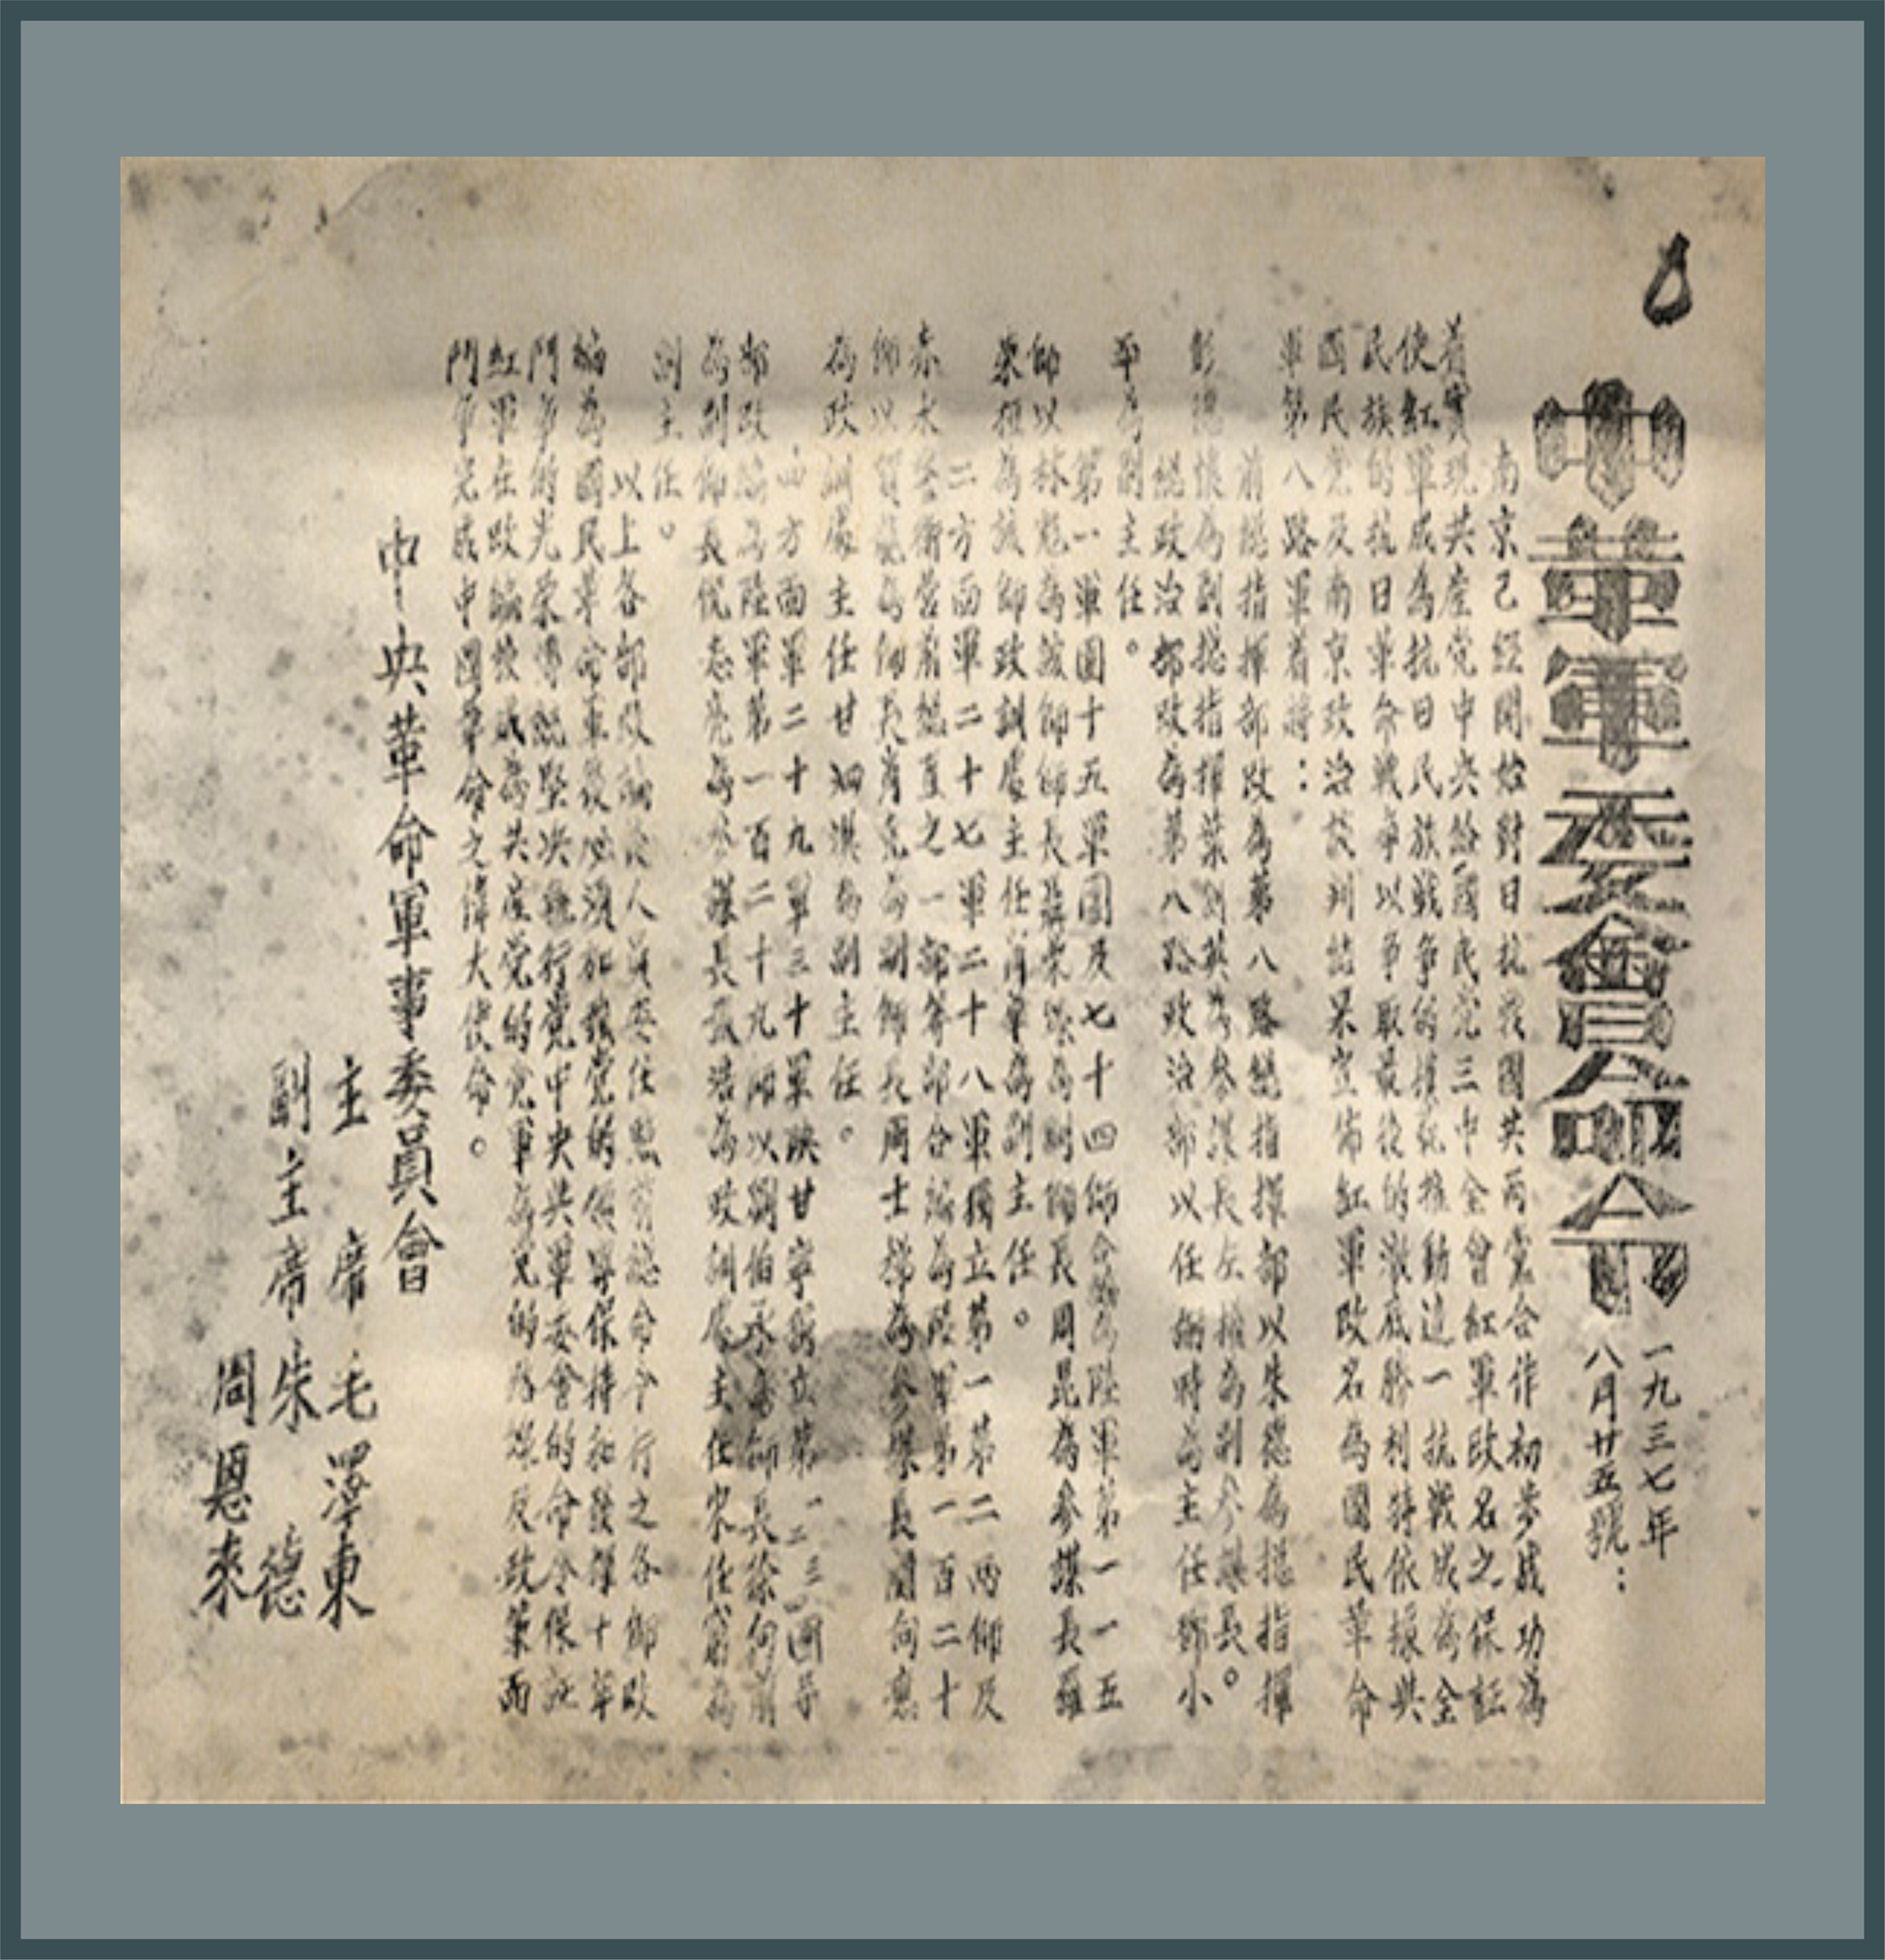 中革軍委會員命令
一九三七年
八月廿五號：
南京已經開始對日抗戰國共兩黨合作初步成功為
着實現共產党中央給國民党三中全會紅軍改名之保証
使紅軍成為抗日民族戰争的模範推動這一抗戰成為全
民族的抗日革命戰争以争取最後的澈底勝利特依據與
國民党及南京政治談判結果宣佈紅軍改名為國民革命
軍第八路軍着將：
前總指揮部改為第八路總指揮部以朱德為總指揮
彭德懷為副總指揮葉劍英為參謀長左權為副參謀長。
總政治部改為第八路政治部以任弼時為主任鄧小
平為副主任。
第一軍團十五軍團及七十四師合編為陸軍第一一五
師以林彪為該師師長聶榮臻為副師長周昆為參謀長羅
榮桓為該師政訓處主任蕭華為副主任。
二方面軍二十七軍二十八軍獨立第一第二兩師及
赤水警衛營前總直之一部等部合編為陸軍第一百二十
師以賀龍為師長蕭克為副師長周士梯為參謀長關向應
為政訓處主任甘泗淇為副主任。
四方面軍二十九軍三十軍陝甘寧獨立第一二三四團等
部改編為陸軍第一百二十九師以劉伯承為師長徐向前
為副師長倪志亮為參謀長張浩為政訓處主任宋任窮為
副主任。
以上各部改編後人員委任照前總命令行之各師改
編為國民革命軍後必須加強党的領導保持和發揮十年
鬥爭的光榮傳統堅決執行党中央與軍委會的命令保証
紅軍在改編後成為共產党的党軍為党的路線及政策而
鬥爭完成中國革命之偉大使命。
中央革命軍事委員會
主席 毛澤東
副主席 朱德
周恩來